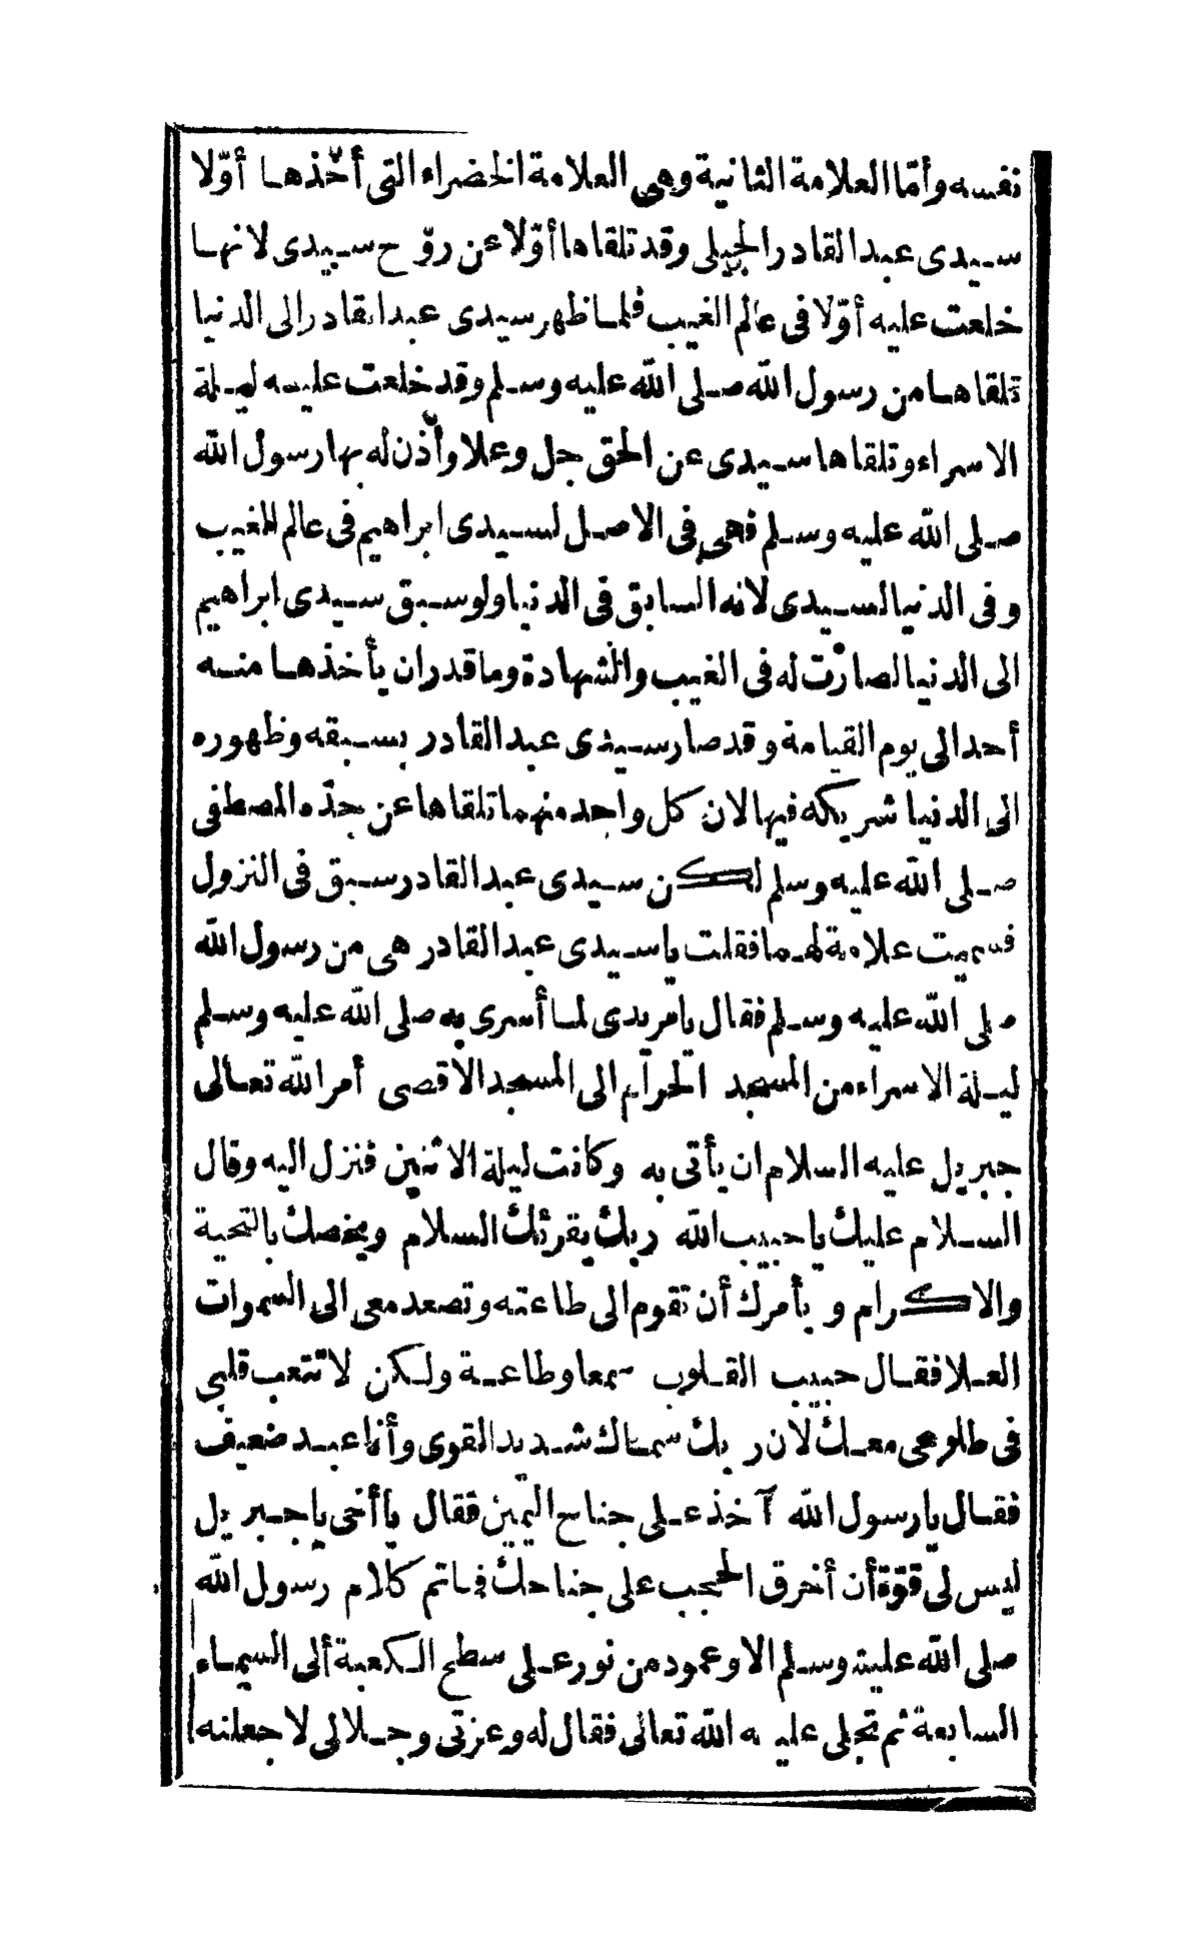 نفسه وأمّا العلامة الثانية وهى العلامة الخضراء التى أخذها أوّلا
سيدى عبد القادر الجيلى وقد تلقاها أوّلا عن روح سيدى لانها
خلعت عليه أوّلا فى عالم الغيب فلما ظهر سيدى عبد القادر الى الدنيا
تلقاها من رسول الله صلى الله عليه وسلم وقد خلعت عليه ليلة
الاسراء وتلقاها سيدى عن الحق جل وعلا وأذن له بها رسول الله
صلى الله عليه وسلم فهى فى الاصل لسيدى ابراهيم فى عالم الغيب
وفى الدنيا لسيدى لانه السابق فى الدنيا ولو سبق سيدى ابراهيم
الى الدنيا لصارت له فى الغيب والشهادة وما قدر ان يأخذها منه
أحد الى يوم القيامة وقد صار سيدى عبد القادر بسبقه وظهوره
الى الدنيا شريكه فيها لان كل واحد منهما تلقاها عن جدّه المصطفى
صلى الله عليه وسلم لكن سيدى عبد القادر سبق فى النزول
فسميت علامة لهما فقلت ياسيدى عبد القادر هى من رسول الله
صلى الله عليه وسلم فقال يامريدى لما أسرى به صلى الله عليه وسلم
ليلة الاسراء من المسجد الحرام الى المسجد الاقصى أمر الله تعالى
جبريل عليه السلام ان يأتى به وكانت ليلة الاثنين فنزل اليه وقال
السلام عليك ياحبيب الله ربك يقرئك السلام ويخصك بالتحية
والاكرام ويأمرك أن تقوم الى طاعته وتصعد معى الى السموات
العلا فقال حبيب القلوب سمعا وطاعة ولكن لا تتعب قلبى
فى طلوعى معك لان ربك سماك شديد القوى وأنا عبد ضعيف
فقال يارسول الله آخذ على جناح اليمين فقال ياأخى ياجبريل
ليس لى قوّة أن أخرق الحجب على جناحك فما تم كلام رسول الله
صلى الله عليه وسلم الا وعمود من نور على سطح الكعبة الى السماء
السابعة ثم تجلى عليه الله تعالى فقال له وعزتى وجلالى لا جعلنه